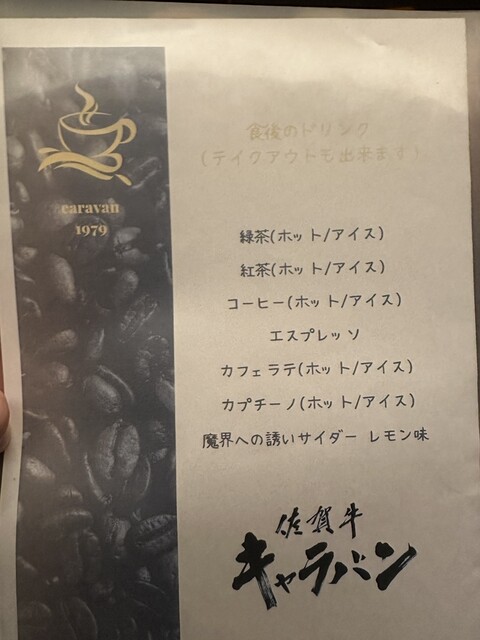 caravan
1979
食後のドリンク
(テイクアウトも出来ます)
緑茶(ホット/アイス)
紅茶(ホット/アイス)
コーヒー(ホット/アイス)
エスプレッソ
カフェラテ(ホット/アイス)
カプチーノ(ホット/アイス)
魔界への誘いサイダー レモン味
佐賀牛
キャラバン